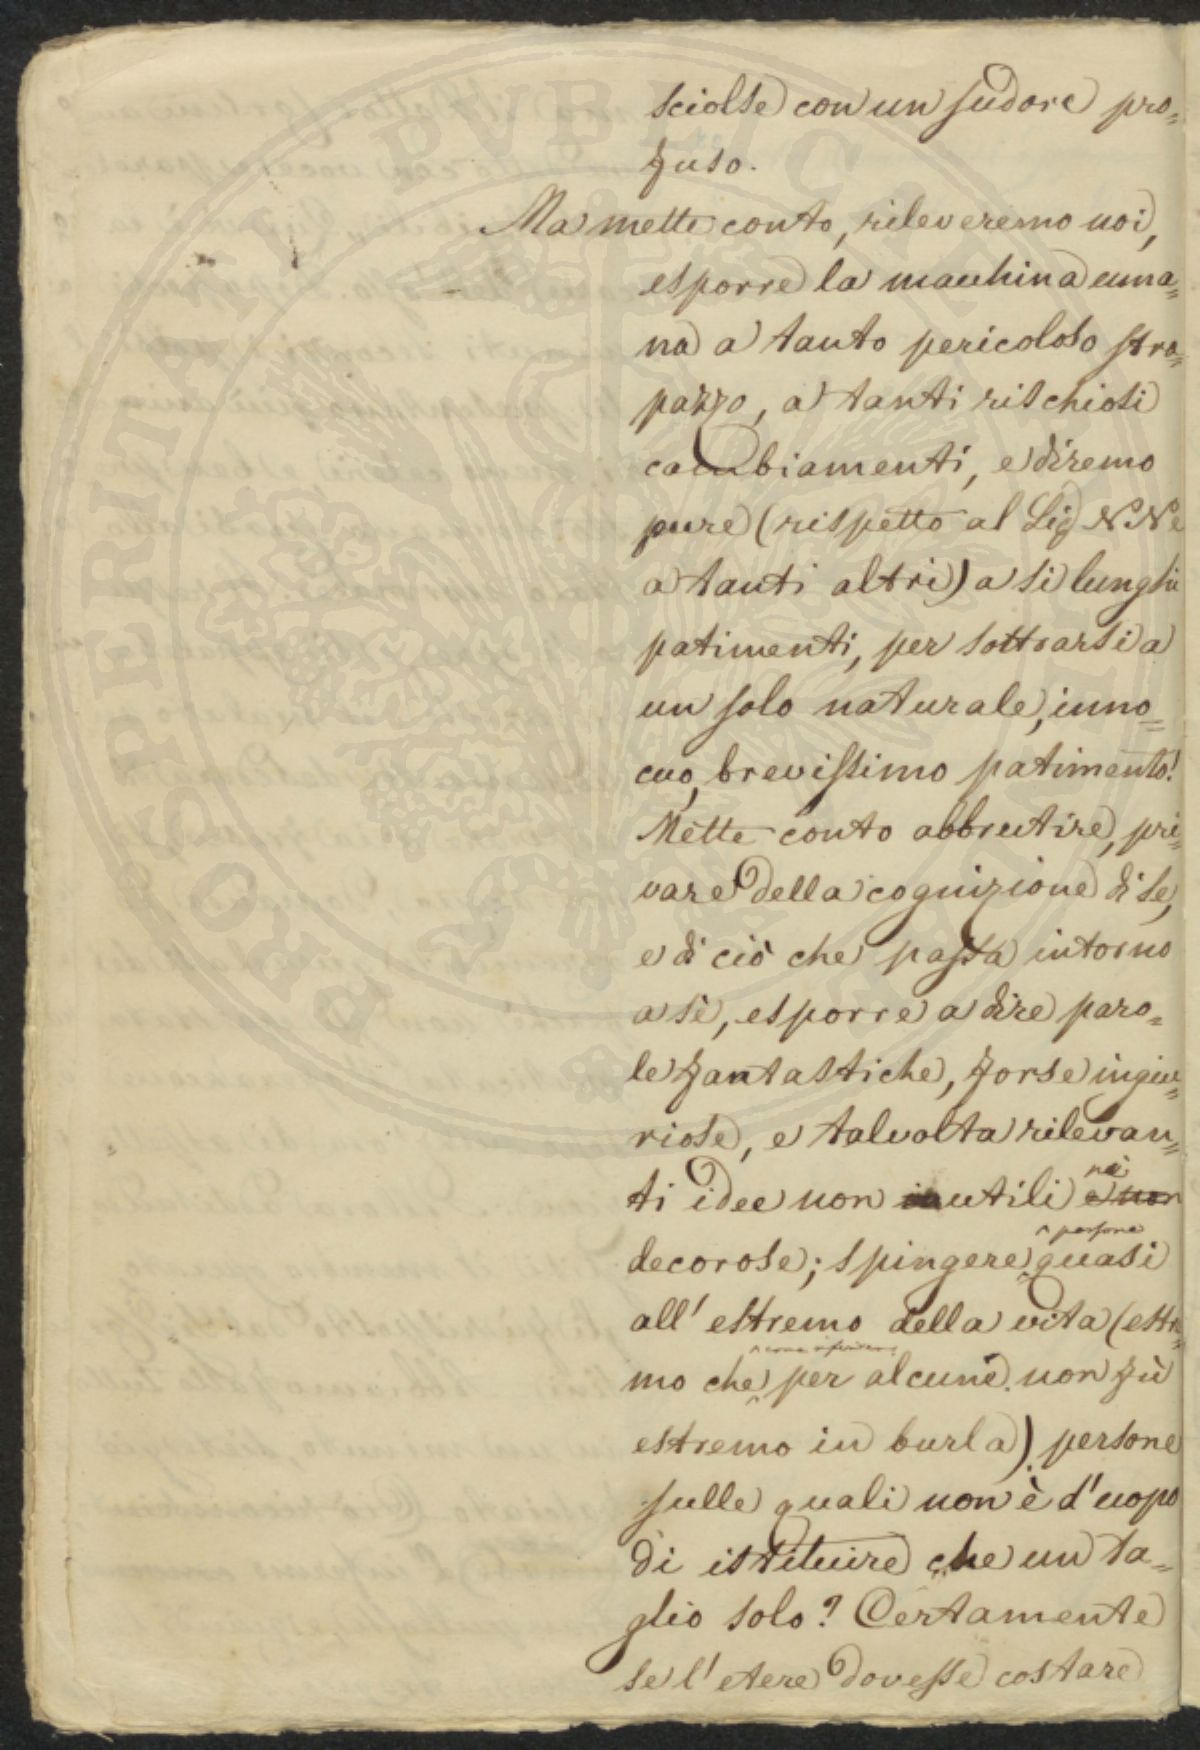 sciolse con un sudore pro=
fuso.
Ma mette conto, rileveremo noi,
esporre la macchina uma=
na a tanto pericoloso stra=
pazzo, a tanti rischiosi
cambiamenti, e diremo
pure (rispetto al Sig NN e
a tanti altri) a si lunghi
patimenti, per sottrarsi a
un solo naturale, inno=
cuo, brevissimo patimento!
Mette conto abbrutire, pri=
vare della cognizione di se,
e di ciò che passa intorno
a sè, esporre a dire paro=
le fantastiche, forse ingiu=
riose, e talvolta rilevan=
nè
ti idee non inutili e non
persone
decorose; spingere quasi
all' estremo della vita (estre=
come
mo che per alcune non fù
estremo in burla) persone
sulle quali non è d'uopo
di istituire che un ta=
glio solo? Certamente
se l'etere dovesse costare
PROSPERITATI PVBLICAE